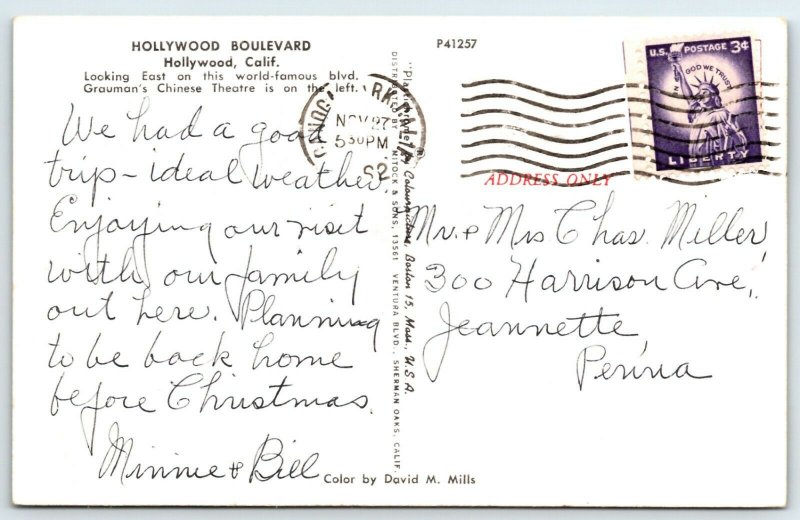 HOLLYWOOD BOULEVARD
Hollywood, Calif.
Looking East on this world-famous blvd.
Grauman's Chinese Theatre is on the left.
We had a good
trip - ideal weather.
Enjoying our visit
with our family
out here. Planning
to be back home
before Christmas.
Minnie & Bill
Color by David M. Mills
DISTRIBUTED BY MITOCK & SONS, 13561 VENTURA BLVD., SHERMAN OAKS, CALIF.
Colourpicture, Boston 15, Mass., U.S.A.
P41257
CANOGA PARK
NOV 27
530 PM
U.S. POSTAGE 3¢
IN GOD WE TRUST
LIBERTY
ADDRESS ONLY
Mr. & Mrs Chas. Miller,
300 Harrison Ave.,
Jeannette,
Penna